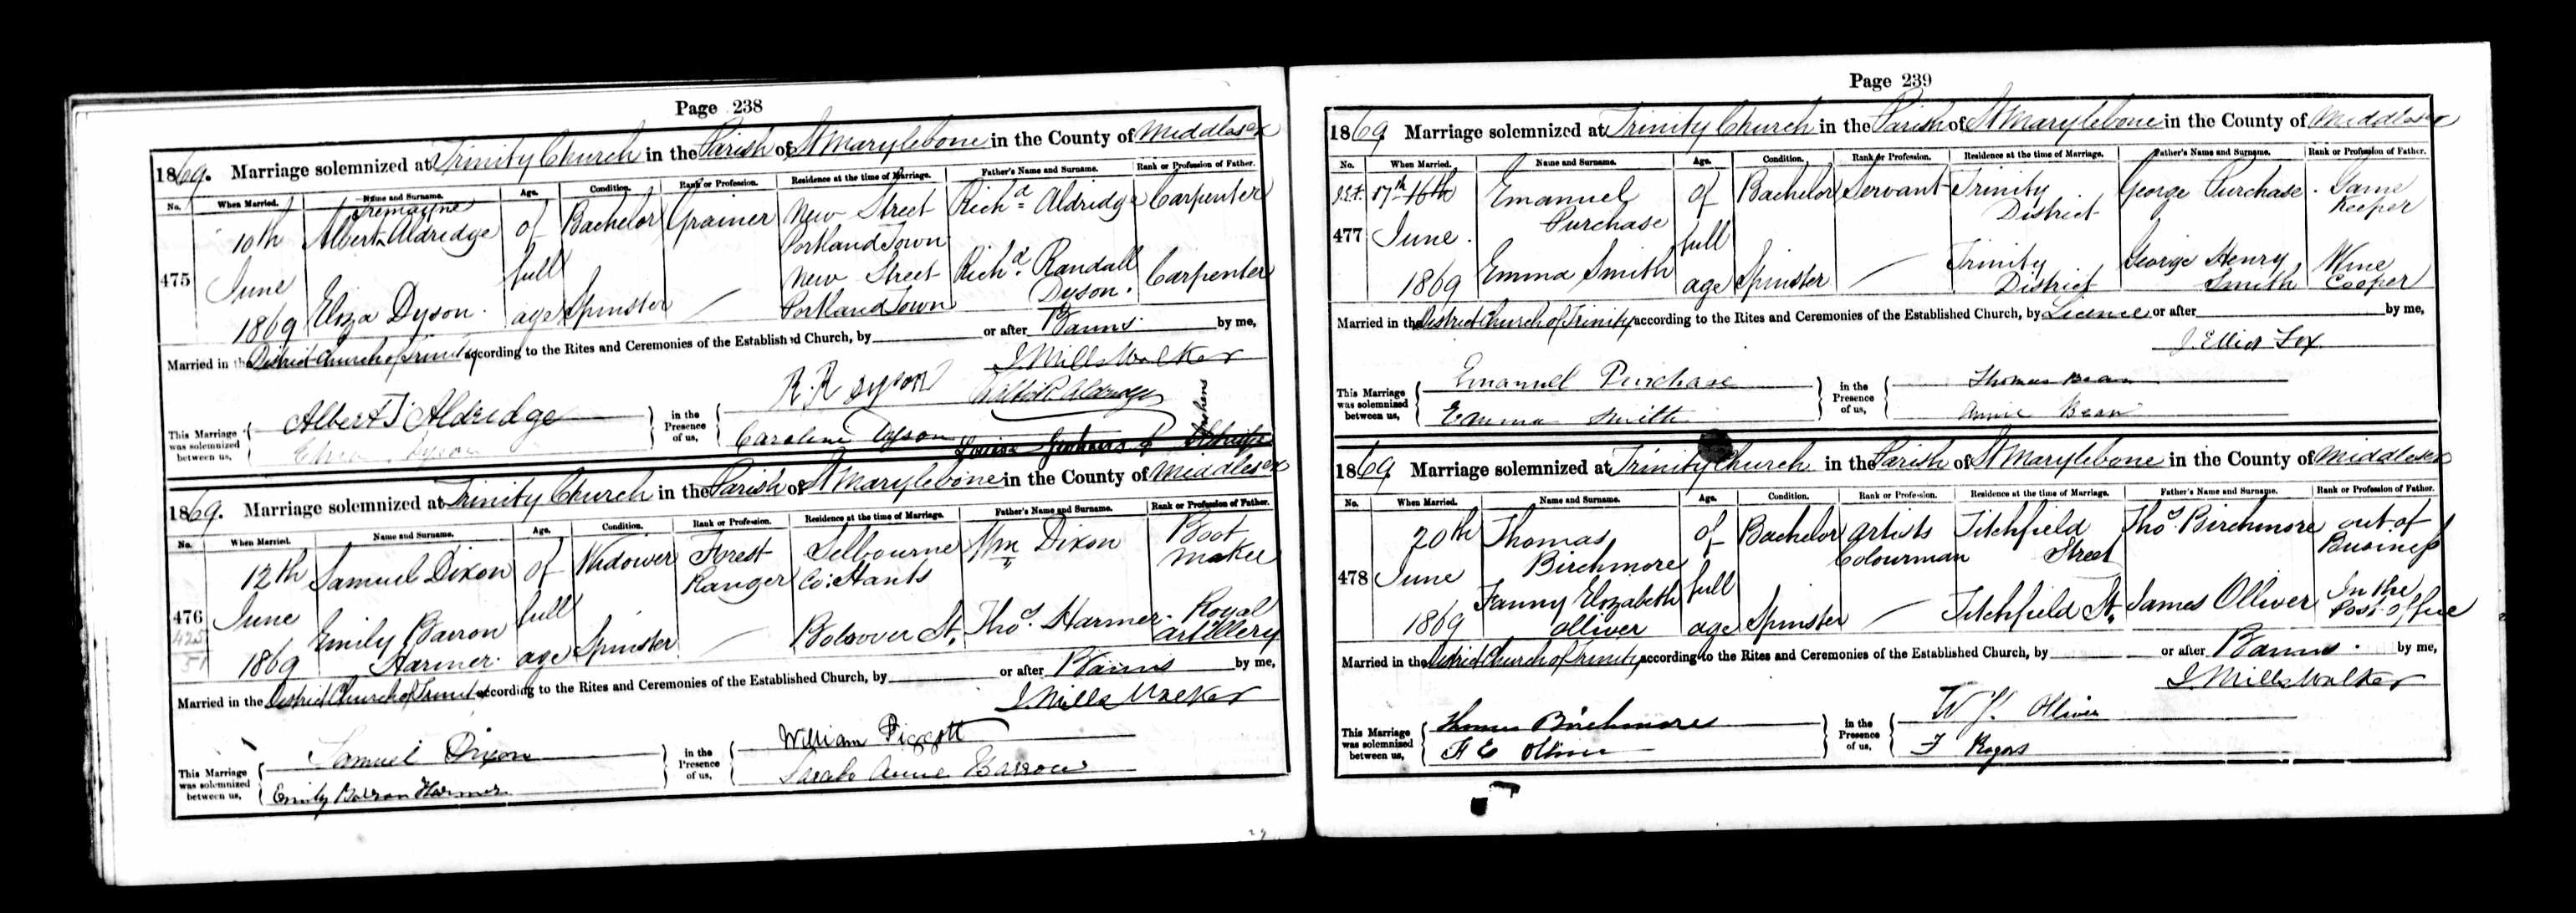 Page 238
1869. Marriage solemnized at Trinity Church in the Parish of St Marylebone in the County of Middlesex
No. When Married. Name and Surname. Age. Condition. Rank or Profession. Residence at the time of Marriage. Father's Name and Surname. Rank or Profession of Father.
475 10th June 1869 Albert Tremayne Aldridge of full age Bachelor Grainer New Street Portland Town Richd Aldridge Carpenter
Eliza Dyson. Spinster New Street Portland Town Richd. Randall Dyson. Carpenter
Married in the District Church of Trinity according to the Rites and Ceremonies of the Established Church, by or after Banns. by me,
J. Mills Walker
This Marriage was solemnized between us, Albert T Aldridge
Eliza Dyson
in the Presence of us, R. R Dyson Aldridge
Caroline Dyson Louisa
1869. Marriage solemnized at Trinity Church in the Parish of St Marylebone in the County of Middlesex
No. When Married. Name and Surname. Age. Condition. Rank or Profession. Residence at the time of Marriage. Father's Name and Surname. Rank or Profession of Father.
476 12th June 1869 Samuel Dixon of full age Widower Forest Ranger Selbourne Co: Hants Wm Dixon Boot maker
Emily Barron Harmer. Spinster Bolsover St. Thos Harmer. Royal Artillery
Married in the District Church of Trinity according to the Rites and Ceremonies of the Established Church, by or after Banns by me,
J. Mills Walker
This Marriage was solemnized between us, Samuel Dixon
Emily Barron Harmer
in the Presence of us, William Piggott
Sarah Anne Barrow
Page 239
1869. Marriage solemnized at Trinity Church in the Parish of St Marylebone in the County of Middlesex
No. When Married. Name and Surname. Age. Condition. Rank or Profession. Residence at the time of Marriage. Father's Name and Surname. Rank or Profession of Father.
477 J.E.F. 17th 16th June. 1869 Emanuel Purchase of full age Bachelor Servant Trinity District George Purchase. Game Keeper
Emma Smith Spinster Trinity District George Henry Smith Wine Cooper
Married in the District Church of Trinity according to the Rites and Ceremonies of the Established Church, by Licence or after by me,
J. Elliot Fox
This Marriage was solemnized between us, Emanuel Purchase
Emma Smith
in the Presence of us, Thomas Bean
Annie Bean
1869. Marriage solemnized at Trinity Church in the Parish of St Marylebone in the County of Middlesex
No. When Married. Name and Surname. Age. Condition. Rank or Profession. Residence at the time of Marriage. Father's Name and Surname. Rank or Profession of Father.
478 20th June 1869 Thomas Birchmore of full age Bachelor Artists Colourman Titchfield Street Thos. Birchmore out of Business
Fanny Elizabeth Olliver Spinster Titchfield St. James Olliver In the Post-Office
Married in the District Church of Trinity according to the Rites and Ceremonies of the Established Church, by or after Banns. by me,
J. Mills Walker
This Marriage was solemnized between us, Thomas Birchmore
F E Olliver
in the Presence of us, W Olliver
F Rogers